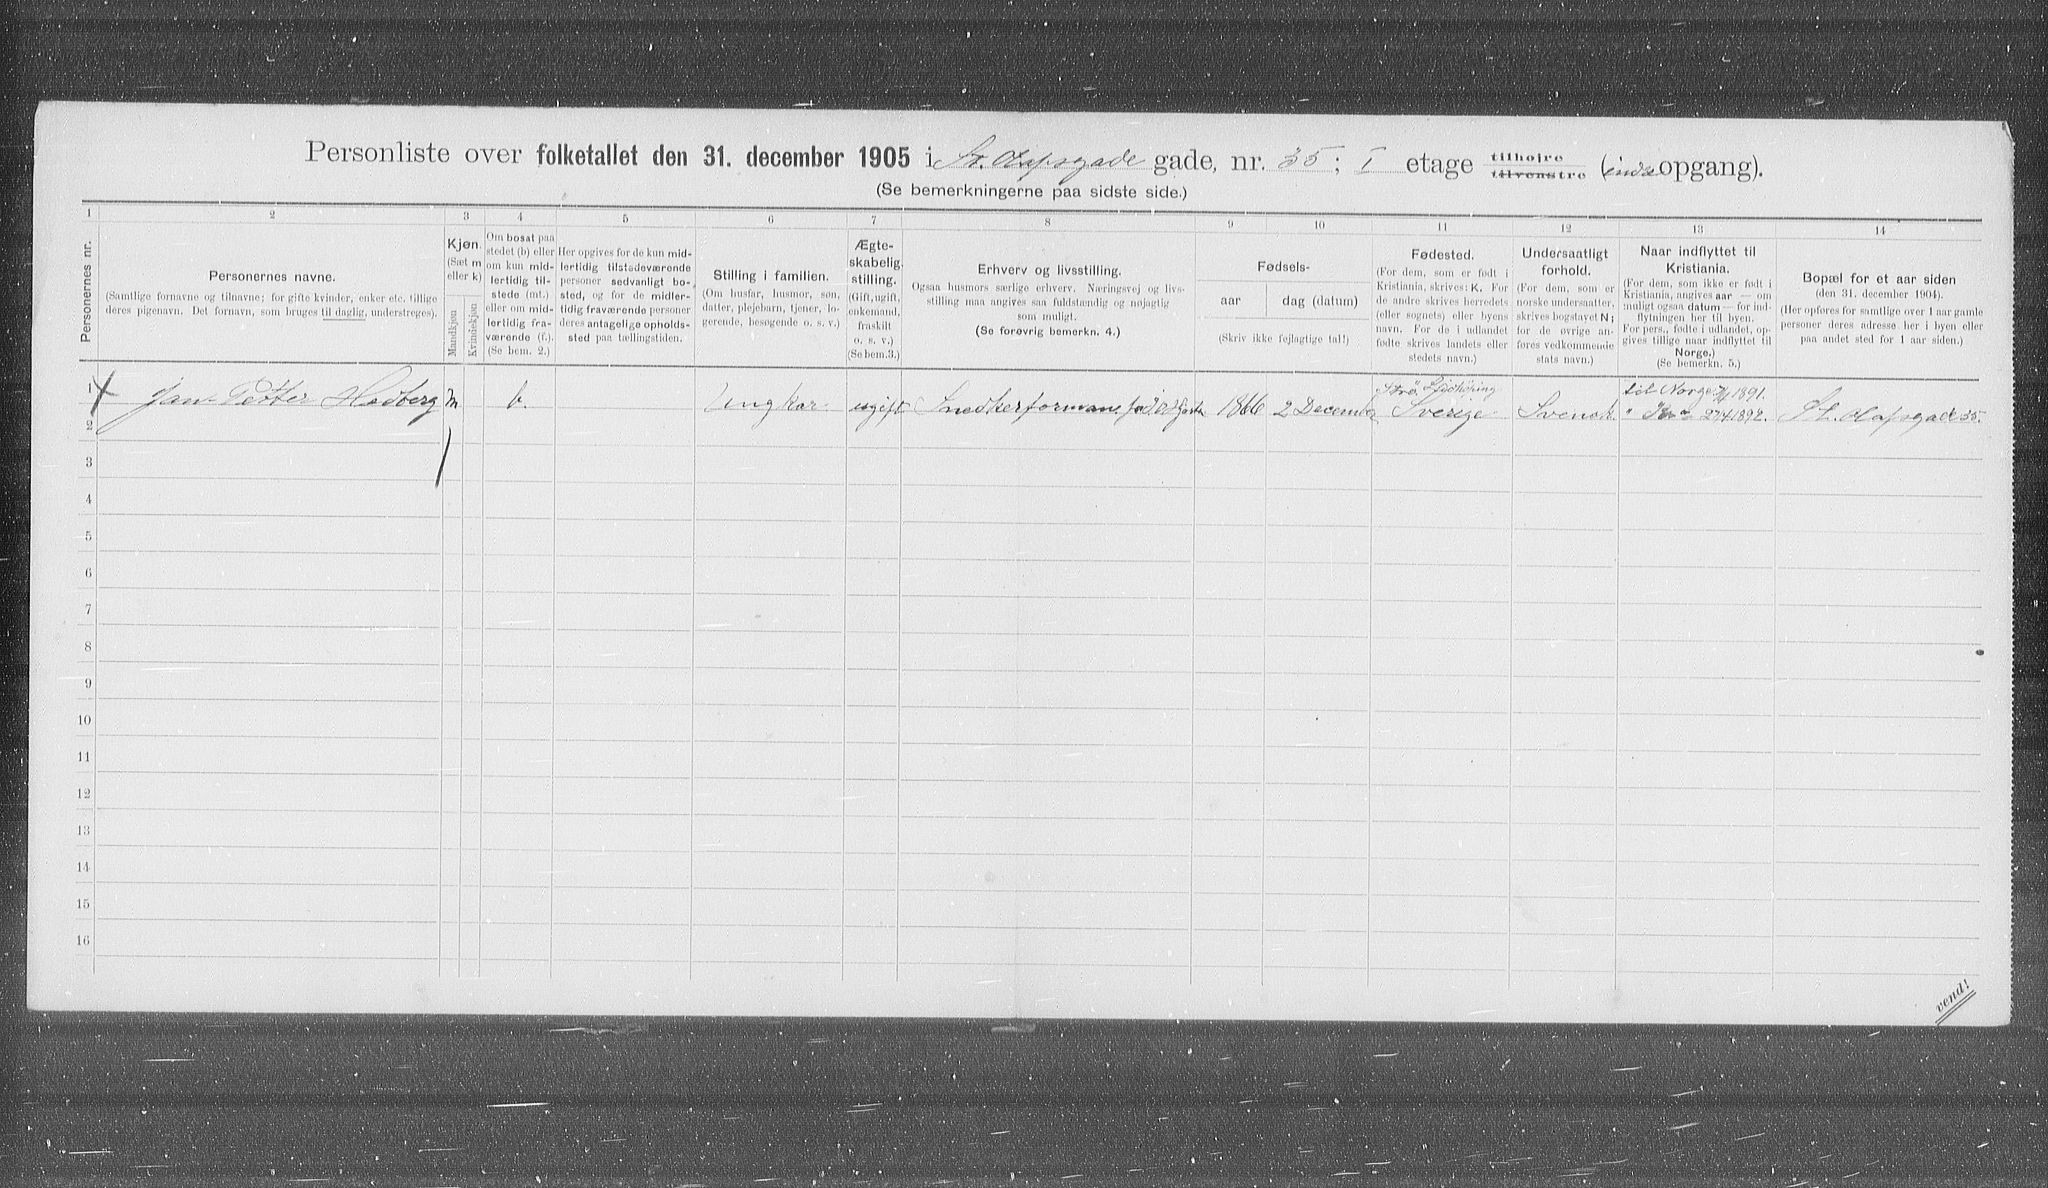 Personliste over folketallet den 31. december 1905 i St. Olafsgade gade, nr. 35; I etage tilhøjre tilvenstre (indr opgang).
(Se bemerkningerne paa sidste side.)
1 2 3 4 5 6 7 8 9 10 11 12 13 14
Personernes nr.
Personernes navne.
(Samtlige fornavne og tilnavne; for gifte kvinder, enker etc. tillige
deres pigenavn. Det fornavn, som bruges til daglig, understreges).
Kjøn.
(Sæt m
eller k)
Mandkjøn
Kvindekjøn
Om bosat paa
stedet (b) eller
om kun mid-
lertidig til-
stede (mt.)
eller om mid-
lertidig fra-
værende (f.).
(Se bem. 2.)
Her opgives for de kun mid-
lertidig tilstedeværende
personer sedvanligt bo-
sted, og for de midler-
tidig fraværende personer
deres antagelige opholds-
sted paa tællingstiden.
Stilling i familien.
(Om husfar, husmor, søn,
datter, plejebarn, tjener, lo-
gerende, besøgende o. s. v.)
Ægte-
skabelig
stilling.
(Gift, ugift,
enkemand,
fraskilt
o. s. v.)
(Se bem. 3.)
Erhverv og livsstilling.
Ogsaa husmors særlige erhverv. Næringsvej og livs-
stilling maa angives saa fuldstændig og nøjagtig
som muligt.
(Se forøvrig bemerkn. 4.)
Fødsels-
aar
dag (datum)
(Skriv ikke fejlagtige tal!)
Fødested.
(For dem, som er født i
Kristiania, skrives: K. For
de andre skrives herredets
(eller sognets) eller byens
navn. For de i udlandet
fødte skrives landets eller
stedets navn.)
Undersaatligt
forhold.
(For dem, som er
norske undersaatter,
skrives bogstavet N;
for de øvrige an-
føres vedkommende
stats navn.)
Naar indflyttet til
Kristiania.
(For dem, som ikke er født i
Kristiania, angives aar — om
muligt ogsaa datum — for ind-
flytningen her til byen.
For pers., fødte i udlandet, op-
gives tillige naar indflyttet til
Norge.)
(Se bemerkn. 5.)
Bopæl for et aar siden
(den 31. december 1904).
(Her opføres for samtlige over 1 aar gamle
personer deres adresse her i byen eller
paa andet sted for 1 aar siden.)
1 Jan Petter Hedberg m b. Ungkar ugift Snedkerformann 1866 2 December Strö, Lidköping Sverige Svensk. til Norge 1891. 27/4 1892. St. Olafsgade 35.
2
3
4
5
6
7
8
9
10
11
12
13
14
15
16
vend!